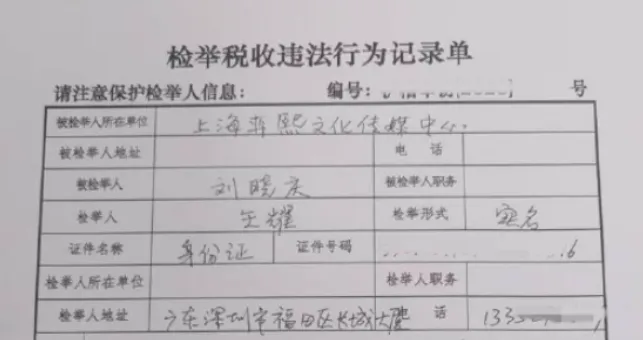 检举税收违法行为记录单
请注意保护检举人信息： 编号： 号
被检举人所在单位 上海 熙文化传媒中心
被检举人地址 电话
被检举人 刘晓庆 被检举人职务
检举人 王耀 检举形式 实名
证件名称 身份证 证件号码 6
检举人所在单位 检举人职务
检举人地址 广东深圳市福田区长城大厦 电话 133